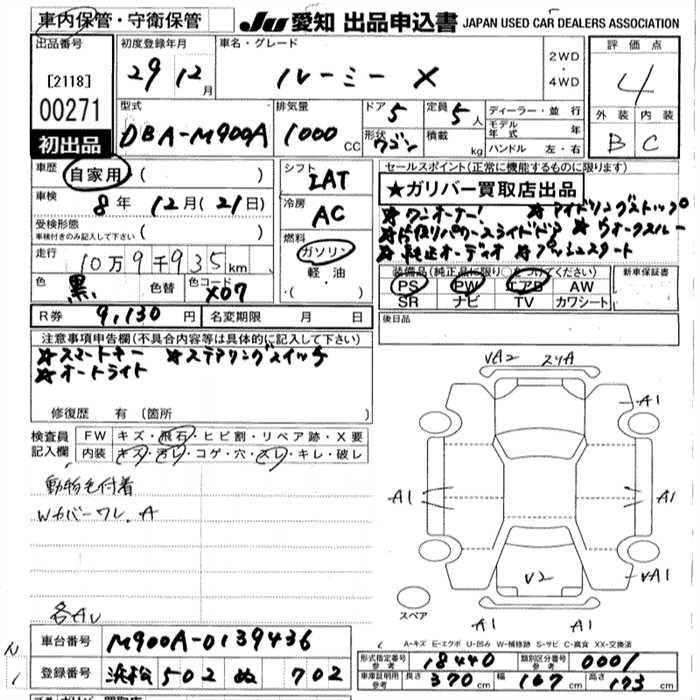 車内保管・守衛保管
JU 愛知 出品申込書 JAPAN USED CAR DEALERS ASSOCIATION
出品番号
[2118]
00271
初出品
初度登録年月
29 12月
車名・グレード
ルーミー X
2WD
・
4WD
評価点
4
外装 内装
B C
型式
DBA-M900A
排気量
1000 CC
ドア 5
形状 ワゴン
定員 5人
積載 kg
ディーラー・並行
モデル年式 年
ハンドル 左・右
車歴 自家用 ( )
車検 8年 12月(21日)
受検形態
車検付きのみ記入して下さい ( )
走行 10万9千935km
色 黒 色替 色コード X07
シフト
IAT
冷房
AC
燃料
ガソリン
軽油
・( )
セールスポイント(正常に機能するものに限ります)
★ガリバー買取店出品
☆ワンオーナー! ☆アイドリングストップ
☆片側パワースライドドア ☆ウォークスルー
☆純正オーディオ ☆プッシュスタート
装備品(純正品に限り○をつけてください)
PS PW エアB AW
SR ナビ TV カワシート
新車保証書
後日品
R券 9,130円 名変期限 月 日
注意事項申告欄(不具合内容等は具体的に記入して下さい)
☆スマートキー ☆ステアリングスイッチ
☆オートライト
修復歴 有 〔箇所 〕
検査員
記入欄
FW キズ・飛石・ヒビ割・リペア跡・X要
内装 キズ・汚レ・コゲ・穴・スレ・キレ・破レ
動物毛付着
Wカバーワレ、A
各AU
VA2 スリA
A1
A1 A1
V2 VA1
スペア
A1 A1
A-キズ E-エクボ U-凹み W-補修跡 S-サビ C-腐食 XX-交換済
車台番号 M900A-0139436
登録番号 浜松 502 ぬ 702
形式指定番号
参考
18440
類別区分番号
参考
0001
車庫証明用
参考
長さ 370cm 幅 167cm 高さ 173cm